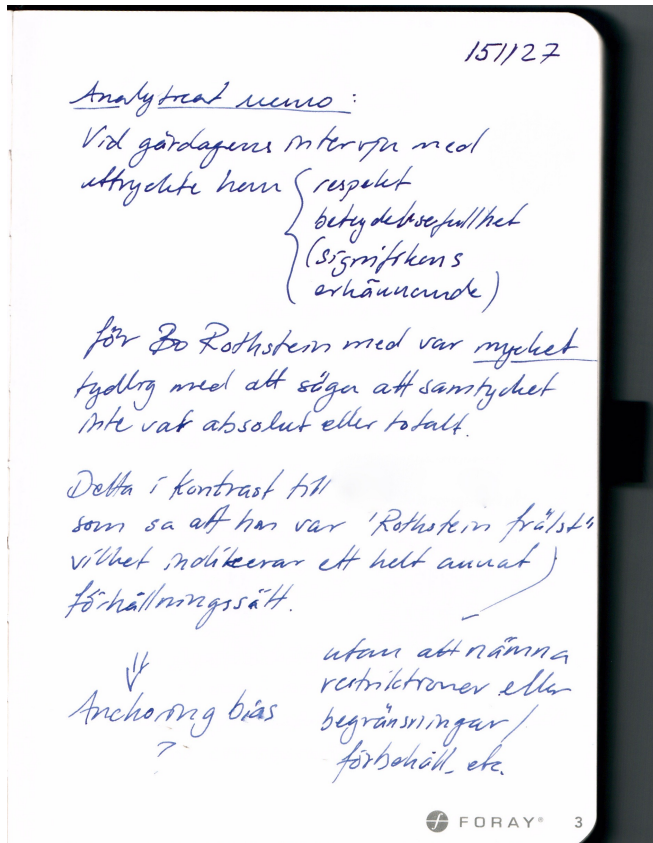 151127
Analytical memo:
Vid gårdagens intervju med
uttryckte hem { respekt
betydelsefullhet
(signifikens
erkännande)
för Bo Rothstein med var mycket
tydlig med att säga att samtycket
inte var absolut eller totalt.
Detta i kontrast till
som sa att han var 'Rothstein frälst"
vilket indikerar ett helt annat
förhållningssätt.
utan att nämna
restriktioner eller
begränsningar/
förbehåll, etc.
⇓
Anchoring bias
?
FORAY® 3